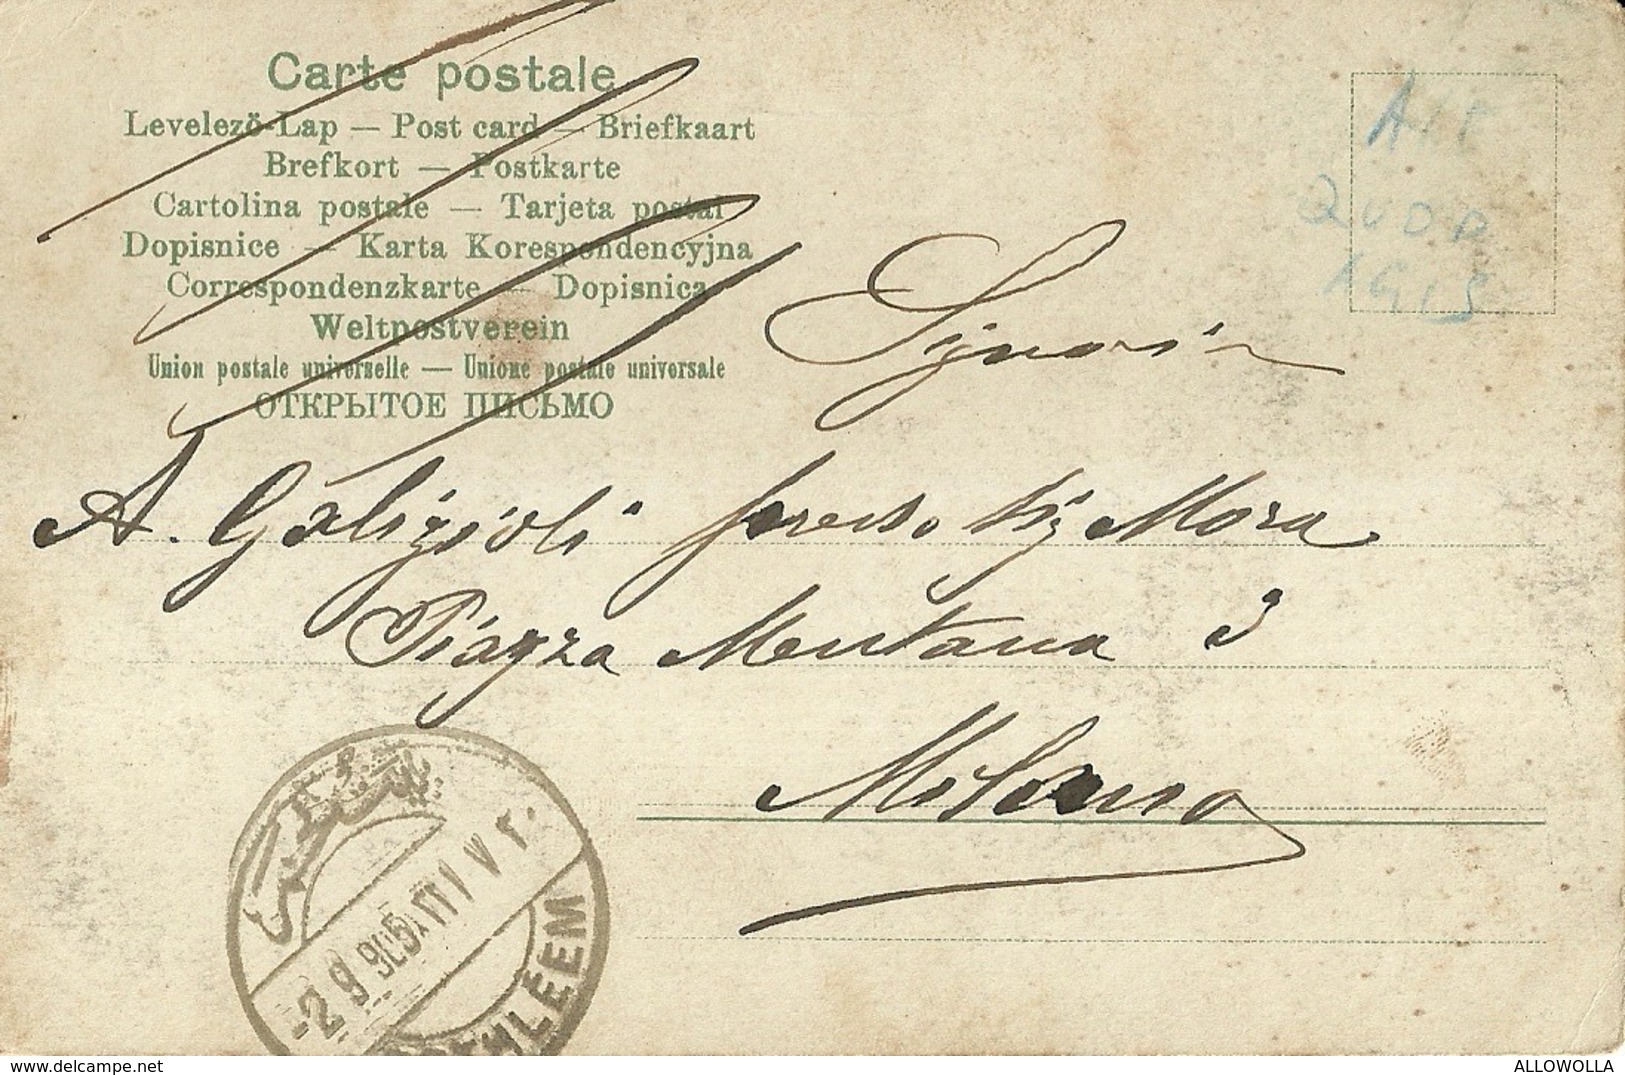 Carte postale
Levelezö-Lap — Post card — Briefkaart
Brefkort — Postkarte
Cartolina postale — Tarjeta postal
Dopisnice — Karta Korespondencyjna
Correspondenzkarte — Dopisnica
Weltpostverein
Union postale universelle — Unione postale universale
ОТКРЫТОЕ ПИСЬМО
A. Galizioli presso Sig Mora
Piazza Mentana 3
Milano
-2 9 905
HLÉEM
hipostcard.com
ALLOWOLLA